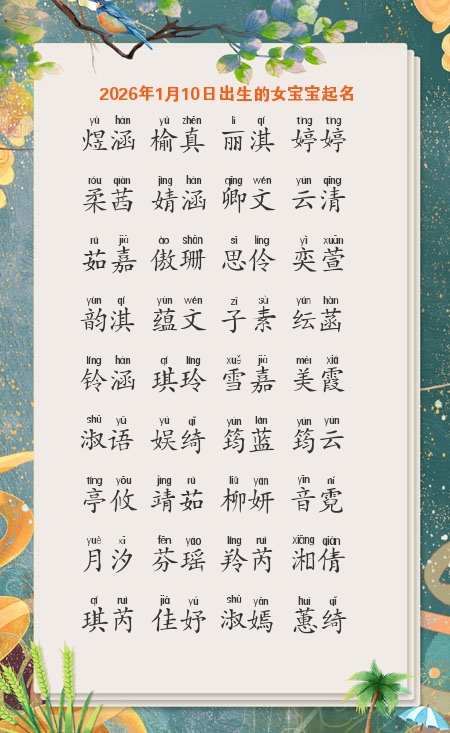 2026年1月10日出生的女宝宝起名
yù hán yú zhēn lì qí tíng tíng
煜涵 榆真 丽淇 婷婷
róu qiàn jìng hán qīng wén yún qīng
柔茜 婧涵 卿文 云清
rú jiā ào shān sī líng yì xuān
茹嘉 傲珊 思伶 奕萱
yùn qí yùn wén zǐ sù yún hàn
韵淇 蕴文 子素 纭菡
líng hán qí líng xuě jiā měi xiá
铃涵 琪玲 雪嘉 美霞
shū yǔ yú qǐ yún lán yún yún
淑语 娱绮 筠蓝 筠云
tíng yōu jìng rú liǔ yán yīn ní
亭攸 靖茹 柳妍 音霓
yuè xī fēn yáo líng ruì xiāng qiàn
月汐 芬瑶 羚芮 湘倩
qí ruì jiā yú shū yān huì qǐ
琪芮 佳妤 淑嫣 蕙绮